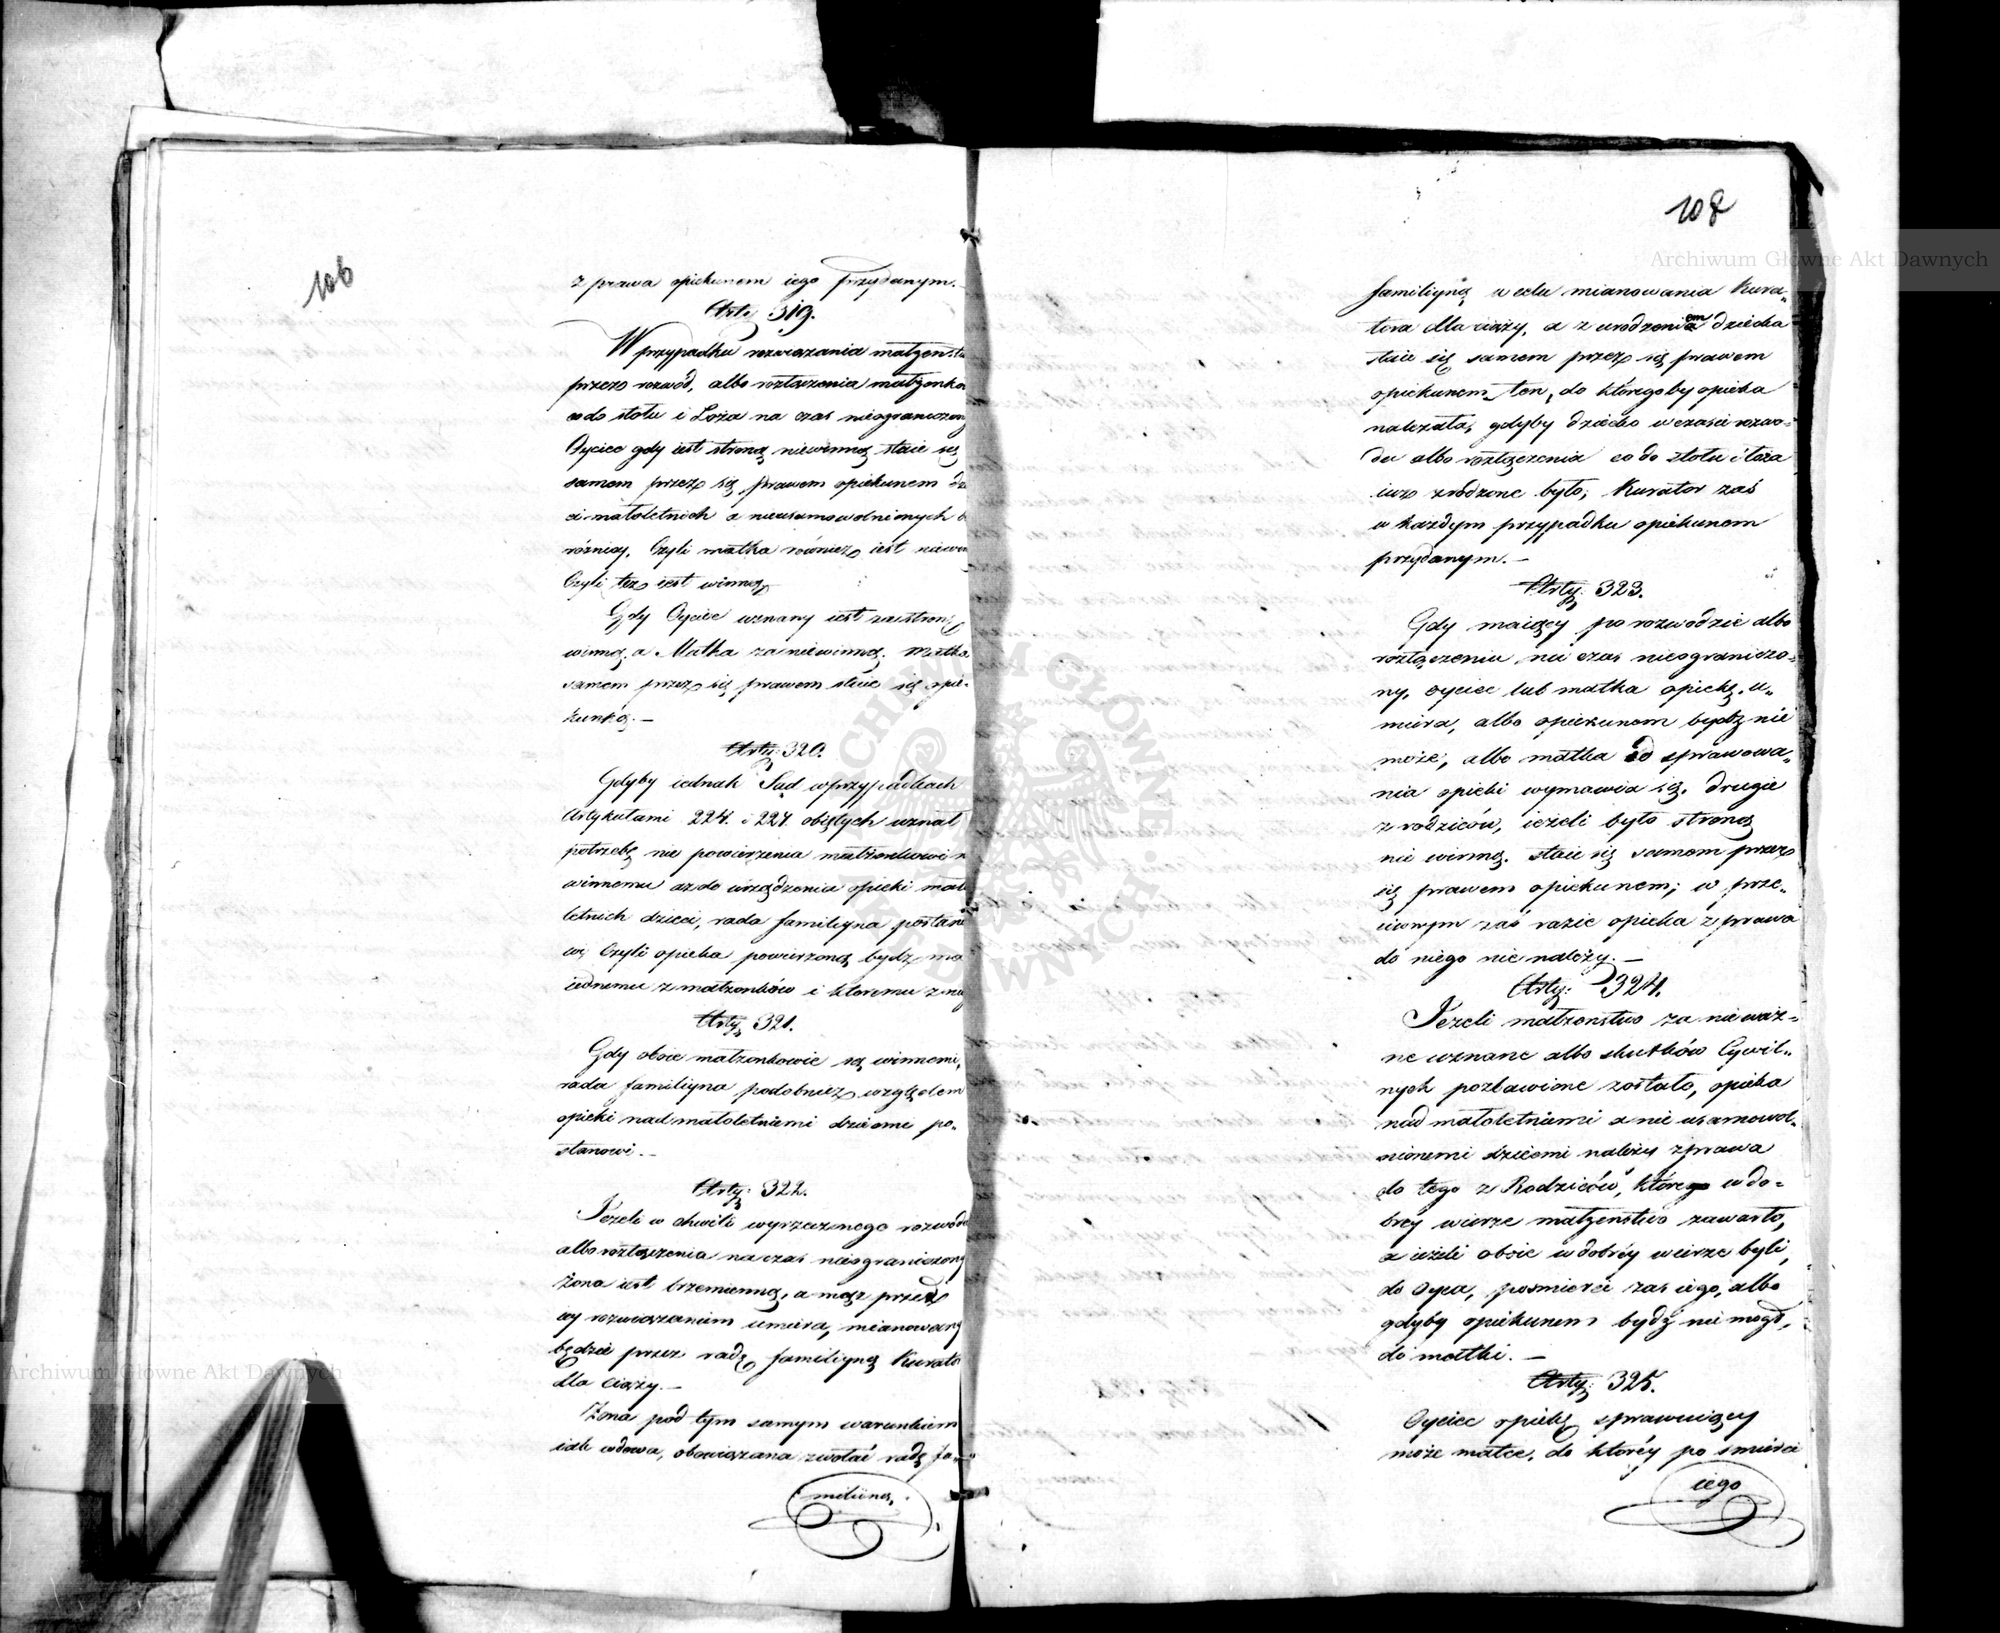 106
z prawa opiekunem iego przydanym.
Arty 319.
W przypadku rozwiązania małżenst
przez rozwód, albo rozłączenia małżonko
co do stołu i Łoża na czas nieograniczon
Oyciec gdy iest stroną niewinną staie się
samem przez się prawem opiekunem dzi
ci małoletnich a nieusamowolnionych b
różnicy, Czyli matka również iest niewin
Czyli też iest winną
Gdy Oyciec uznany iest za stronę
winną, a Matka za niewinną, Matka
samem przez się prawem staie się opie-
kunką. —
Arty: 320.
Gdyby iednak Sąd w przypadkach
Artykułami 224. i 227. obiętych uznał
potrzebę nie powierzenia małżonkowi n
winnemu aż do urządzenia opieki mało
letnich dzieci, rada familiyna postano
wi Czyli opieka powierzoną bydz ma
iednemu z małżonków i któremu z nich
Arty 321.
Gdy oboie małżonkowie są winnemi,
rada familiyna podobnież względem
opieki nad małoletniemi dziećmi po-
stanowi. —
Arty: 322.
Jeżeli w chwili wyrzeczonego rozwodu
albo rozłączenia na czas nieograniczony
żona iest brzemienną, a mąż przed
iey rozwiązaniem umiera, mianowany
będzie przez radę familiyną Kurator
dla Ciąży. —
Żona pod tym samym warunkiem
iak wdowa, obowiązana zwołać radę fa-
miliiną
108
familiyną w celu mianowania Kura-
tora dla ciąży, a z urodzeniem dziecka
staie się samem przez się prawem
opiekunem ten, do któregoby opieka
należała, gdyby dziecko w czasie rozwo-
du albo rozłączenia co do stołu i łoża
iuż zrodzone było; Kurator zaś
w każdym przypadku opiekunem
przydanym. —
Arty: 323.
Gdy maiący po rozwodzie albo
rozłączeniu na czas nieograniczo-
ny, oyciec lub matka opiekę, u-
miera, albo opiekunem bydz nie
może, albo matka od sprawowa-
nia opieki wymawia się, drugie
z rodziców, ieżeli było stroną
nie winną, staie się samem przez
się prawem opiekunem; w prze-
ciwnym zaś razie opieka z prawa
do niego nie należy. —
Arty: 324.
Jeżeli małżonstwo za nieważ-
ne uznane albo skutków Cywil-
nych pozbawione zostało, opieka
nad małoletniemi a nie usamowol-
nionemi dziećmi należy z prawa
do tego z Rodziców, które w do-
brey wierze małżenstwo zawarło,
a ieżeli oboie w dobréy wierze byli,
do Oyca, po śmierci zaś iego, albo
gdyby opiekunem bydz nie mógł,
do matki. —
Arty: 325.
Oyciec opiekę sprawuiący
może matce, do któréy po śmierci
iego
Archiwum Główne Akt Dawnych
Archiwum Główne Akt Dawnych
ARCHIWUM GŁÓWNE AKT DAWNYCH